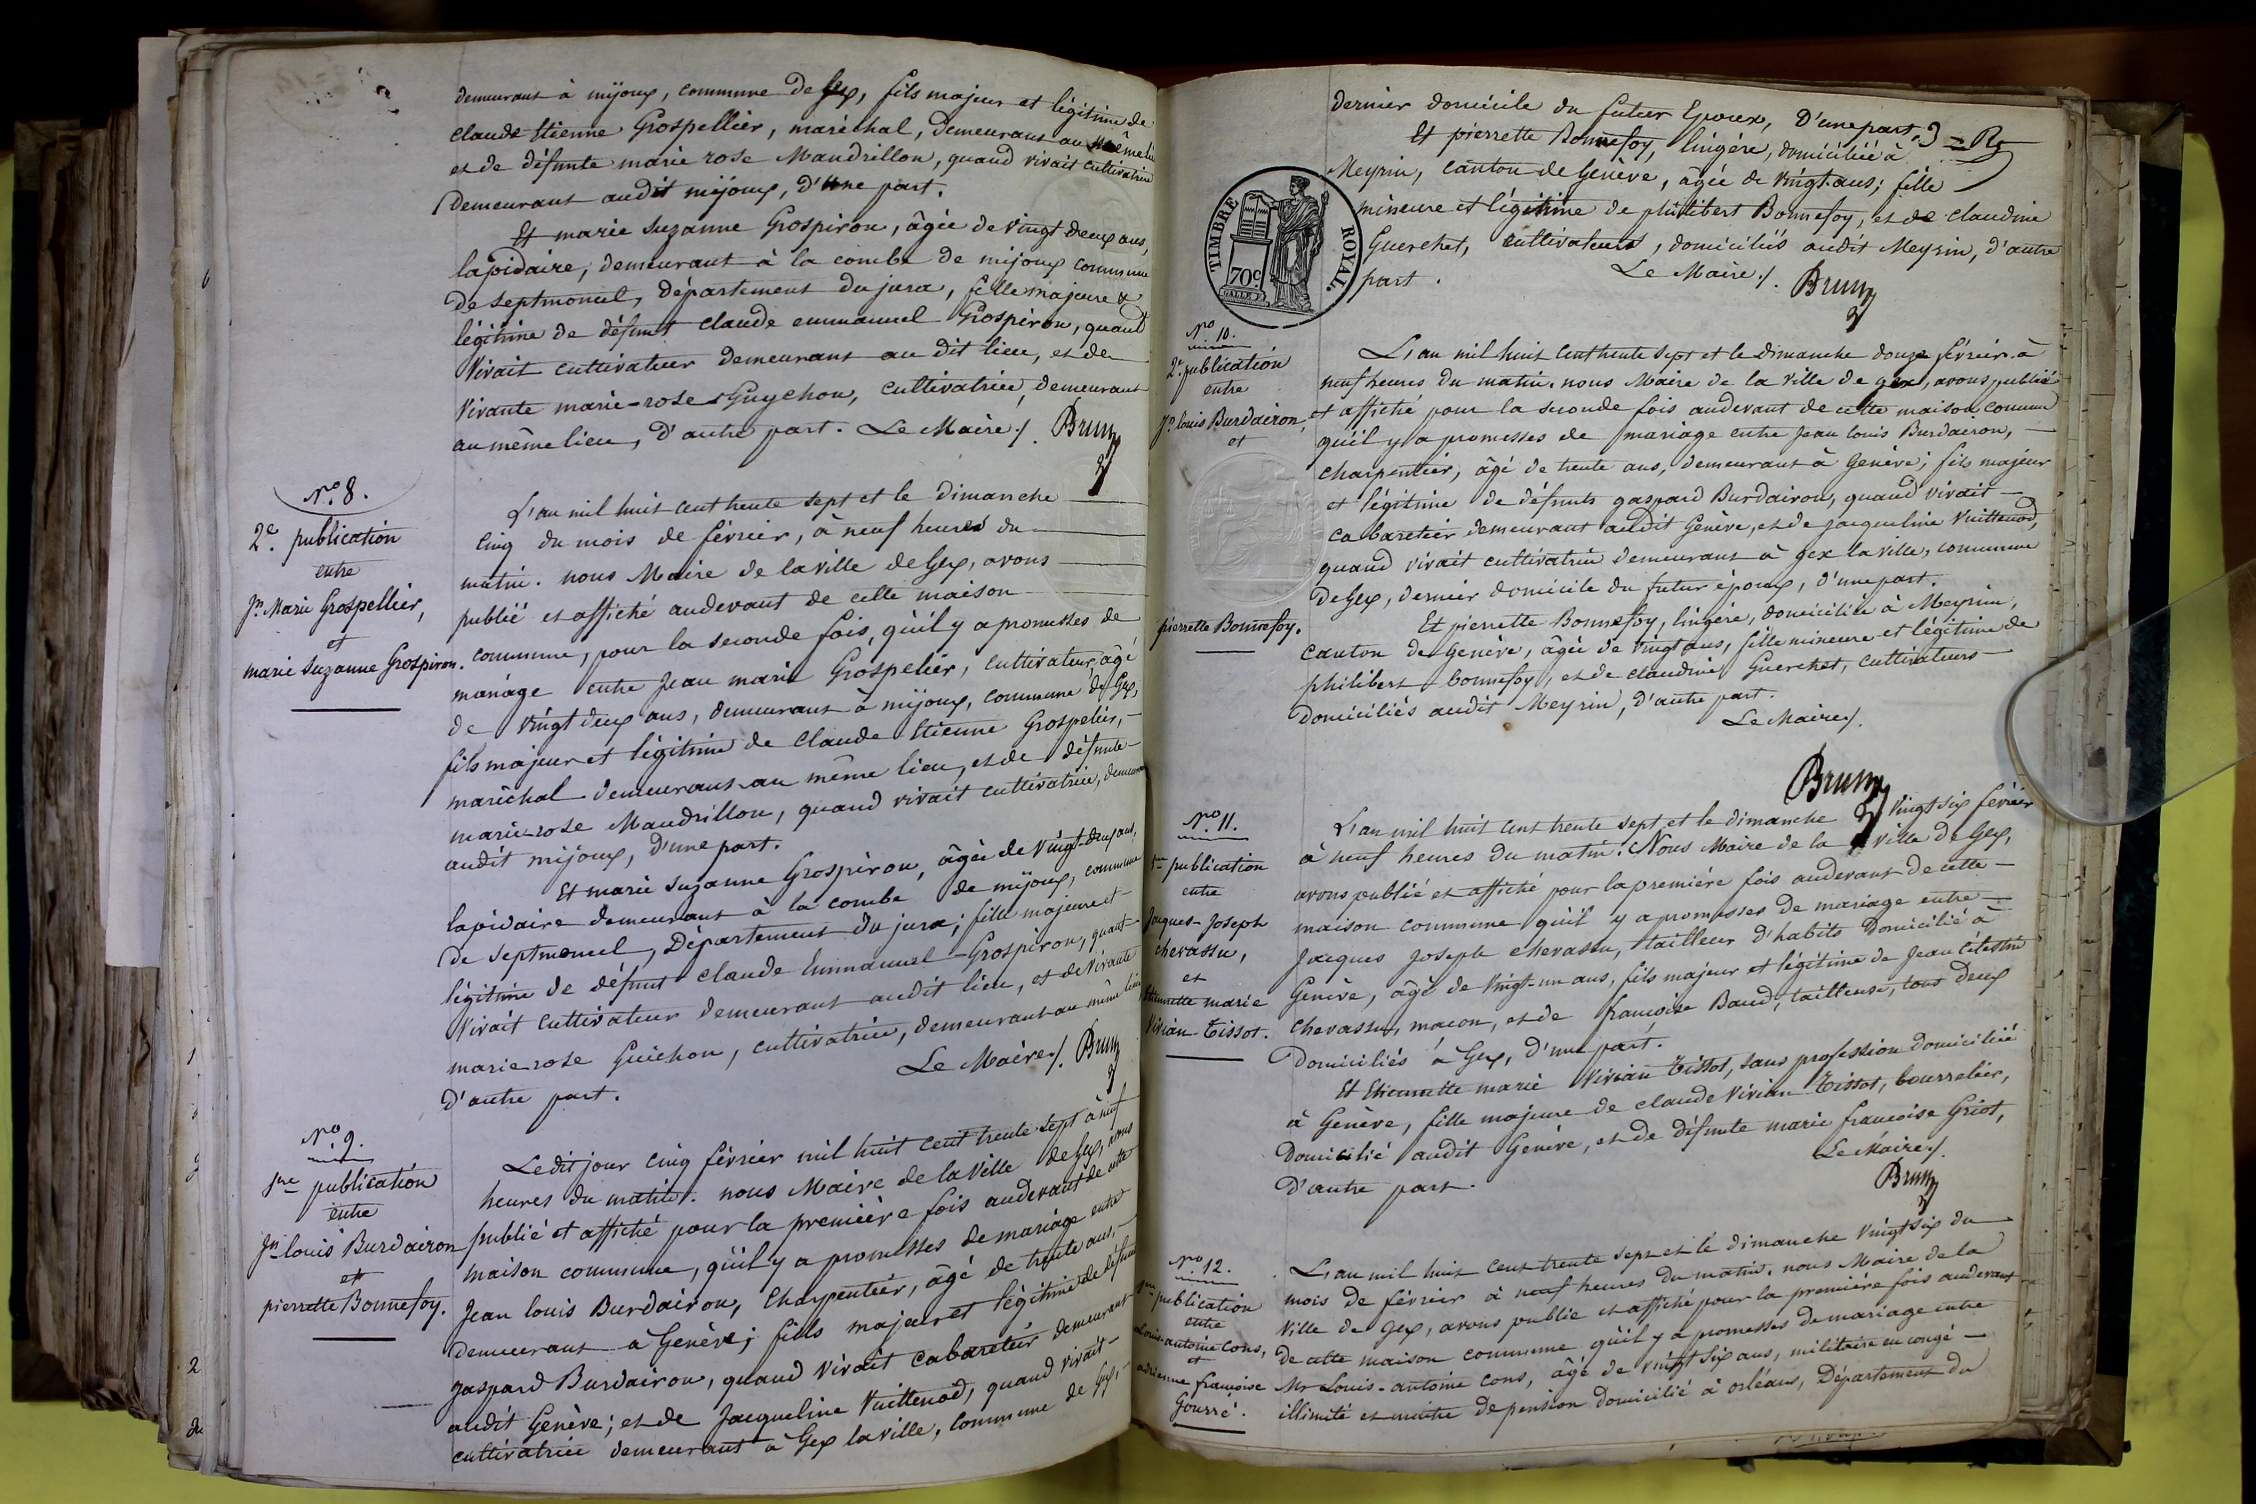 demeurant à mijoux, commune de Gex, fils majeur et légitime de
claude Etienne Grospellier, maréchal, demeurant au même lieu
et de défunte marie rose Mandrillon, quand vivait cultivatrice
demeurant audit mijoux, d'une part.
Et marie suzanne Grospiron, âgée de vingt deux ans,
lapidaire, demeurant à la combe de mijoux commune
de septmoncel, département du jura, fille majeure &
légitime de défunt claude emmanuel Grospiron, quand
vivait cultivateur demeurant au dit lieu, et de
vivante marie-rose Guychon, cultivatrice, demeurant
au même lieu, d'autre part. Le Maire /. Brun
N.º 8.
2e. publication
entre
Jn. Marie Grospellier,
et
marie suzanne Grospiron.
L'an mil huit cent trente sept et le dimanche
cinq du mois de février, à neuf heures du
matin. nous Maire de la ville de Gex, avons
publié et affiché audevant de cette maison
commune, pour la seconde fois, qu'il y a promesses de
mariage entre Jean marie Grospelier, cultivateur, âgé
de vingt deux ans, demeurant à mijoux, commune de Gex,
fils majeur et légitime de Claude Etienne Grospelier,
maréchal demeurant au même lieu, et de défunte
marie-rose Mandrillon, quand vivait cultivatrice, demeurant
audit mijoux, d'une part.
Et marie suzanne Grospiron, âgée de vingt-deux ans,
lapidaire demeurant à la combe de mijoux, commune
de septmoncel, Département du jura; fille majeure et
légitime de défunt claude Emmanuel Grospiron, quand
vivait cultivateur demeurant audit lieu, et de vivante
marie-rose Guichon, cultivatrice, demeurant au même lieu
d'autre part. Le Maire /. Brun
N.º 9.
1re publication
entre
Jn louis Burdairon
et
pierrette Bonnefoy.
Ledit jour cinq février mil huit cent trente sept à neuf
heures du matin. nous Maire de la Ville de Gex, avons
publié et affiché pour la première fois audevant de cette
maison commune, qu'il y a promesses de mariage entre
Jean louis Burdairon, Charpentier, âgé de trente ans,
demeurant à Genève; fils majeur et légitime de défunt
gaspard Burdairon, quand vivait cabaretier demeurant
audit Genève; et de Jacqueline Vuittenod, quand vivait
cultivatrice demeurant à Gex la ville, commune de Gex,
dernier domicile du futur Epoux, D'une part,
Et pierrette Bonnefoy, lingère, domiciliée à
Meyrin, canton de Genève, âgée de vingt-ans; fille
mineure et légitime de philibert Bonnefoy, et de claudine
Guerchet, cultivateurs, domiciliés audit Meyrin, d'autre
part. Le Maire /. Brun
TIMBRE ROYAL.
70c.
N.º 10.
2e. publication
entre
Jn. louis Burdairon,
et
pierrette Bonnefoy.
L'an mil huit cent trente sept et le dimanche douze février à
neuf heures du matin. nous Maire de la ville de gex, avons publié
et affiché pour la seconde fois audevant de cette maison commune
qu'il y a promesses de mariage entre Jean louis Burdairon,
charpentier, âgé de trente ans, demeurant à Genève; fils majeur
et légitime de défunts gaspard Burdairon, quand vivait
cabaretier demeurant audit Genève, et de jacqueline Vuittenod,
quand vivait cultivatrice demeurant à gex la ville, commune
de Gex, dernier domicile du futur époux, d'une part.
Et pierrette Bonnefoy, lingère, domiciliée à Meyrin,
canton de Genève, âgée de vingt ans, fille mineure et légitime de
philibert bonnefoy, et de claudine Guerchet, cultivateurs
domiciliés audit Meyrin, d'autre part.
Le Maire /.
Brun
N.º 11.
1re publication
entre
Jacques-Joseph
chevassu,
et
Etiennette marie
Vivian-Tissot.
L'an mil huit cent trente sept et le dimanche vingt six février
à neuf heures du matin. Nous Maire de la ville de Gex,
avons publié et affiché pour la première fois audevant de cette
maison commune qu'il y a promesses de mariage entre
Jacques Joseph chevassu, tailleur d'habits domicilié à
Genève, âgé de vingt-un ans, fils majeur et légitime de Jean Célestin
chevassu, maçon, et de françoise Baud, tailleuse, tous deux
Domiciliés à Gex, d'une part.
Et Etiennette marie Vivian Tissot, sans profession domiciliée
à Genève, fille majeure de claude Vivian-Tissot, bourrelier,
domicilié audit Genève, et de défunte marie françoise Griot,
d'autre part. Le Maire /.
Brun
N.º 12.
1re publication
entre
Louis-antoine Cons,
et
adrienne françoise
Gourré.
L'an mil huit cent trente sept et le dimanche vingt six du
mois de février à neuf heures du matin. nous Maire de la
ville de Gex, avons publié et affiché pour la première fois audevant
de cette maison commune qu'il y a promesses de mariage entre
Mr Louis-antoine Cons, âgé de vingt six ans, militaire en congé
illimité et maître de pension domicilié à orléans, Département du